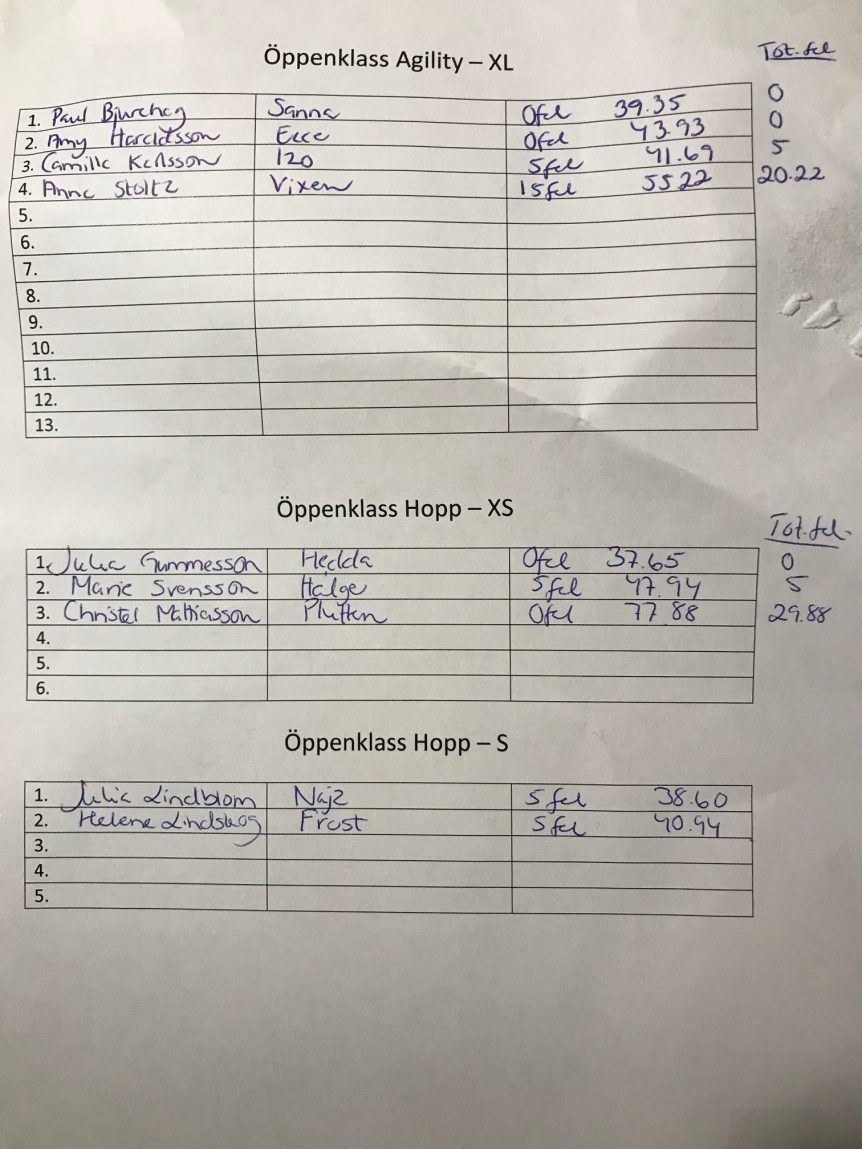 Öppenklass Agility – XL
Tot. fel
1. Paul Bjurehag Sanna 0fel 39.35 0
2. Amy Haraldsson Ecce 0fel 43.93 0
3. Camilla Karlsson 120 5fel 41.69 5
4. Anna Stoltz Vixen 15fel 55 22 20.22
5.
6.
7.
8.
9.
10.
11.
12.
13.
Öppenklass Hopp – XS
Tot. fel.
1. Julia Gummesson Hedda 0fel 37.65 0
2. Marie Svensson Halge 5fel 47.94 5
3. Christel Mathiasson Plutten 0fel 77 88 29.88
4.
5.
6.
Öppenklass Hopp – S
1. Julia Lindblom 5 fel 38.60
2. Helene Lindskog Frost 5 fel 40.94
3.
4.
5.